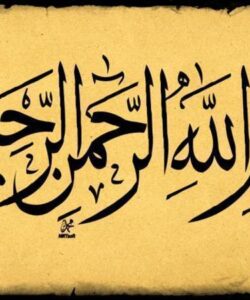 اللَّهِ الرَّحْمَنِ الرَّحِ